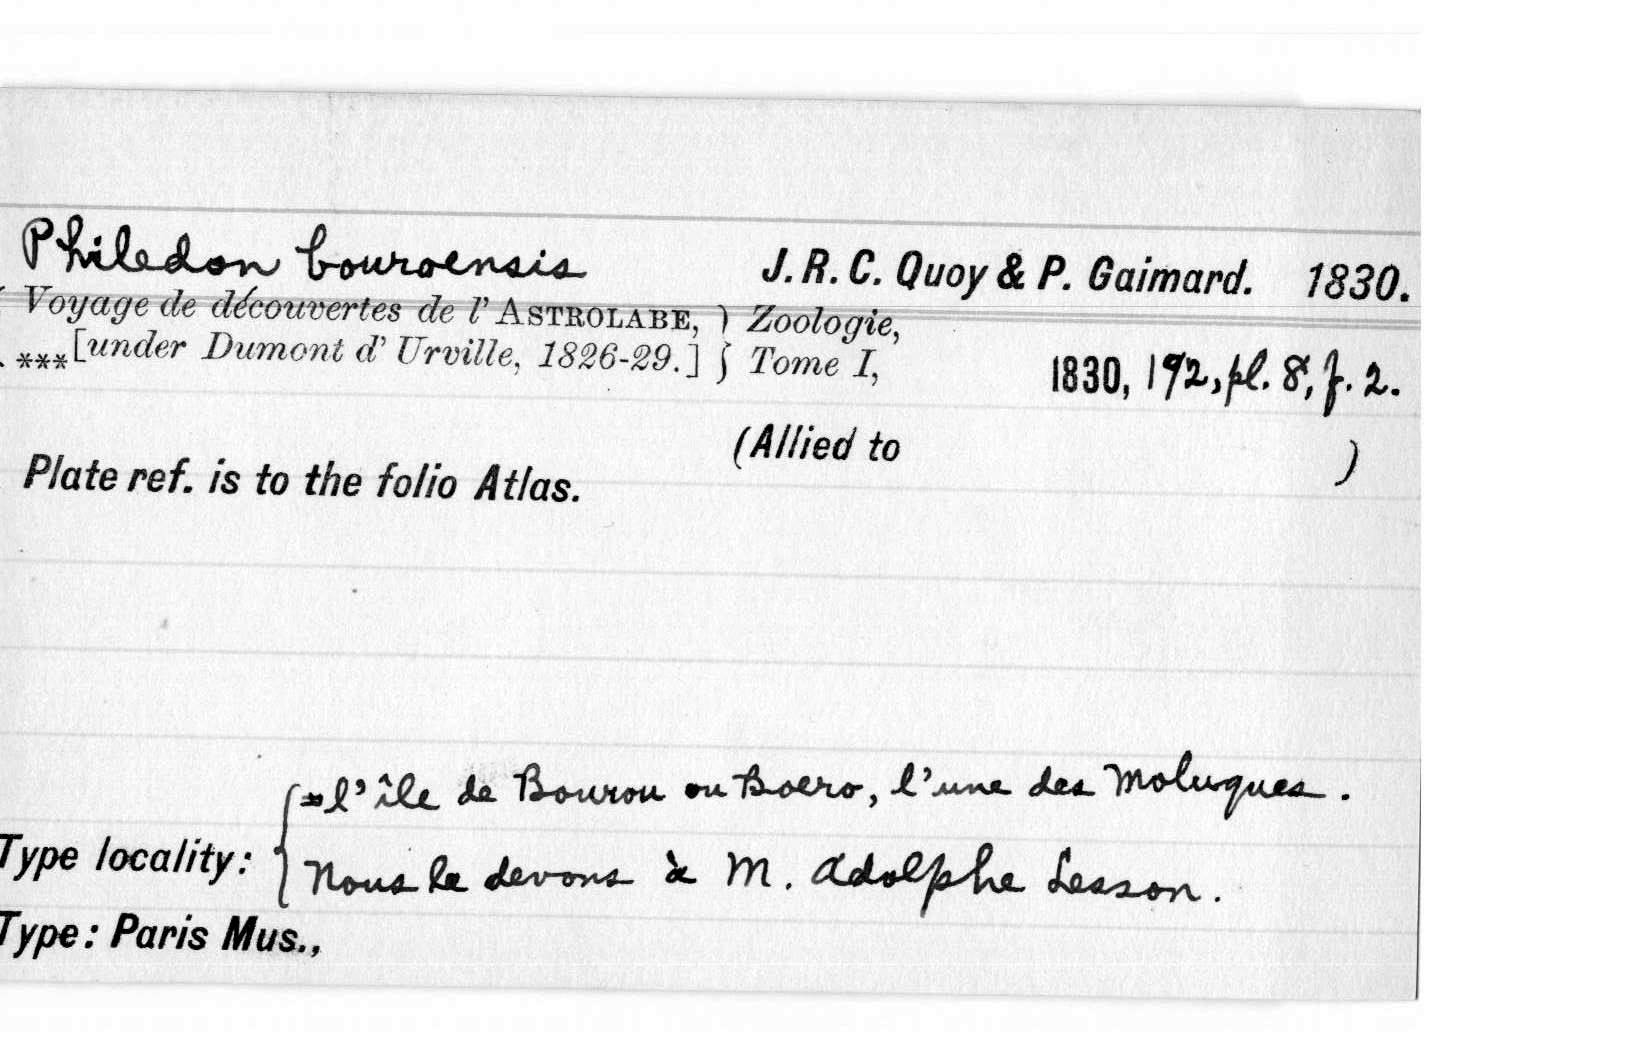 Philedon bouroensis J. R. C. Quoy & P. Gaimard. 1830.
Voyage de découvertes de l' ASTROLABE, ) Zoologie,
***[under Dumont d' Urville, 1826-29.] } Tome I, 1830, 192, pl. 8, f. 2.
(Allied to )
Plate ref. is to the folio Atlas.
l'île de Bourou ou Boero, l'une des Moluques.
Type locality: { Nous le devons à M. Adolphe Lesson.
Type: Paris Mus.,